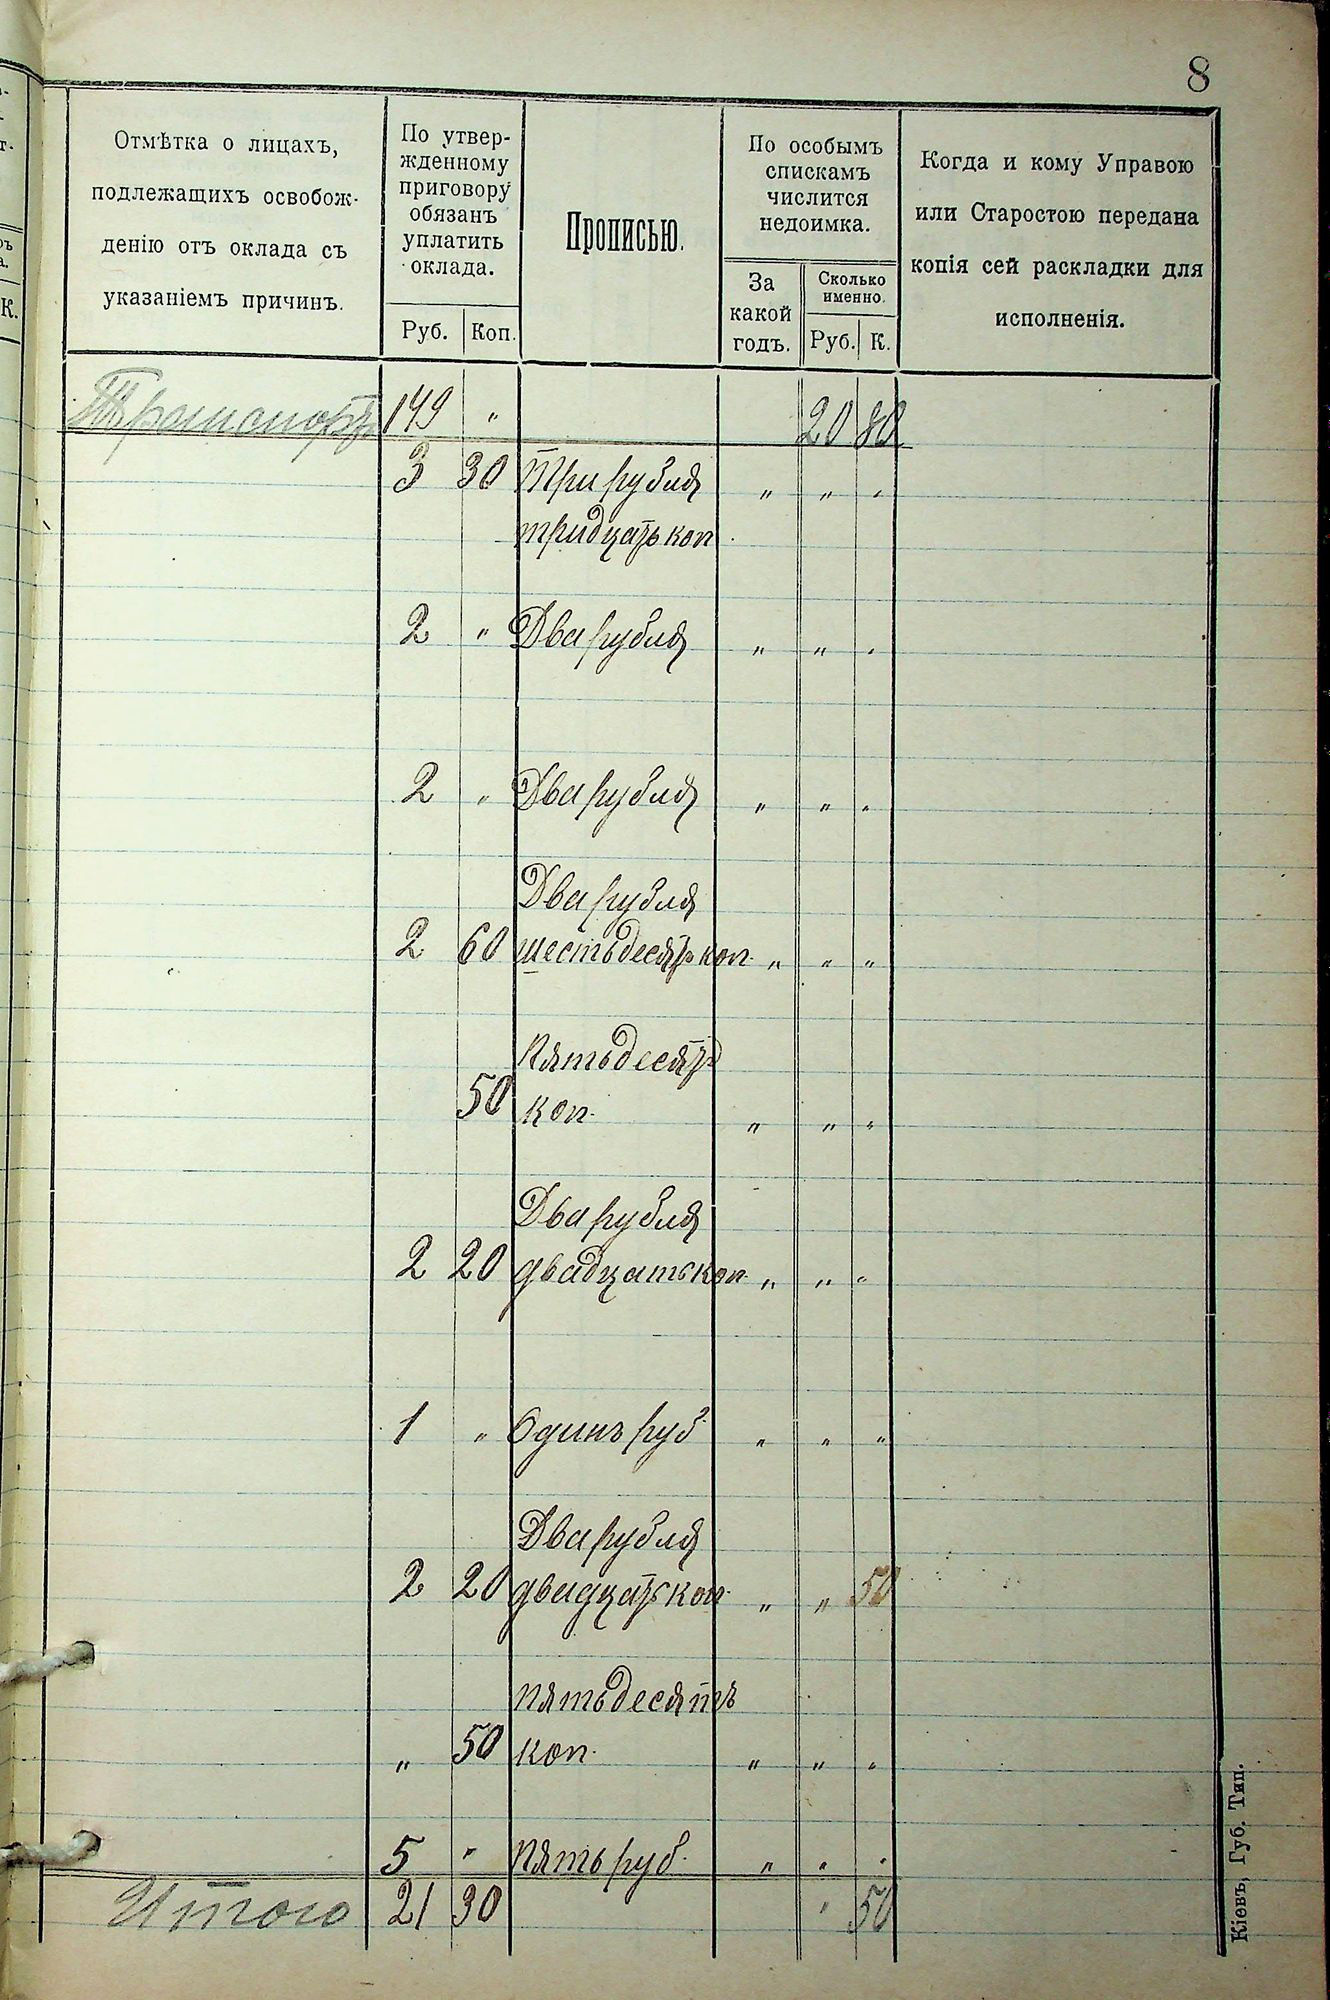 8
Отмѣтка о лицахъ,
подлежащихъ освобож-
денію отъ оклада съ
указаніемъ причинъ.
По утвер-
жденному
приговору
обязанъ
уплатить
оклада.
Руб. Коп.
Прописью.
По особымъ
спискамъ
числится
недоимка.
За
какой
годъ.
Сколько
именно.
Руб. К.
Когда и кому Управою
или Старостою передана
копія сей раскладки для
исполненія.
Транспортъ 149 „ 20 80
3 30 Три рубля „ „ „
тридцать коп.
2 „ Два рубля „ „ „
2 „ Два рубля „ „ „
Два рубля
2 60 шестьдесятъ коп. „ „ „
Пятьдесятъ
50 коп. „ „ „
Два рубля
2 20 двадцать коп. „ „ „
1 „ Одинъ руб. „ „ „
Два рубля
2 20 двадцать коп. „ „ 50
Пятьдесятъ
„ 50 коп. „ „ „
5 „ Пять руб. „ „ „
Итого 21 30 „ 50
Кіевъ, Губ. Тип.
К.